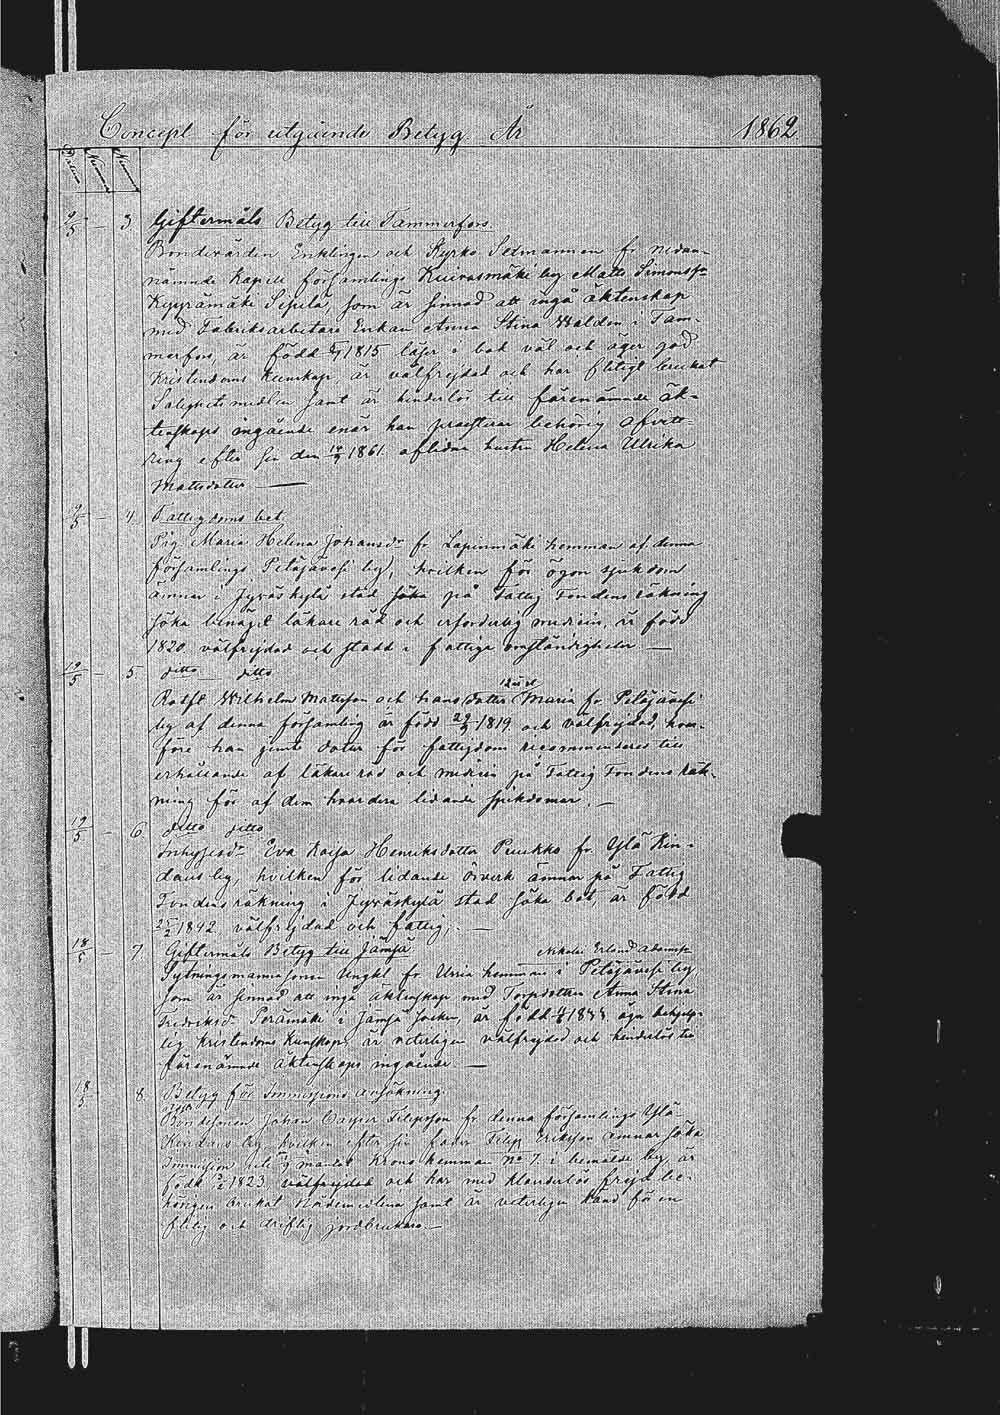 Concept för utgående Betyg År 1862
9/5 — 3 Giftermåls Betyg till Tammerfors.
Bondevärden Enklingen och Kyrko Setmannen fr nedan-
nämnde Kapell församlings Kuivasmäki by Matts Simonss:n
Kyyrämäki Seppälä, som är sinnad att ingå äktenskap
med Fabriksarbetare Enkan Anna Stina Waldén i Tam-
merfors, är född 1815 läser i bok väl och äger god
Kristendoms Kunskap, är välfrejdad och har flitigt brukat
Salighetsmedlen samt är hinderlös till förenämnde äk-
tenskaps ingående enär han præsterar behörig afvitt-
ring efter sin den 1861 aflidna hustru Helena Ulrika
Mattsdotter —
9/5 — 4 Fattigdoms bet.
Pig. Maria Helena Johansdr fr Lapinmäki hemman af denna
församlings Petäjävesi by, hvilken för ögon sjukdom
ämnar i Jyväskylä stad söka på Fattig Fondens räkning
söka benäget läkare råd och erforderlig medicin, är född
1820 välfrejdad och stadd i fattiga omständigheter —
19/5 — 5. ditto ditto
Wilhelm Mattsson och hans Dotter Maria fr Petäjävesi
by af denna församling är född 29/9 1819 och välfrejdad, hvar-
före han jemte dotter för fattigdom recommenderas till
erhållande af läkare råd och medicin på Fattig Fondens räk-
ning för af dem hvardera lidande sjukdomar. —
19/5 — 6. ditto ditto
Inhysesdr Eva Kaisa Henriksdotter Puukko fr. Ylä Kin-
daus by, hvilken för lidande ämnar på Fattig
Fondens räkning i Jyväskylä stad söka bot, är född
1842 välfrejdad och fattig. —
18/5 — 7. Giftermåls Betyg till Jämsä Nikolai Erland Adamss:n
Sytningsmannasonen Ungkl fr Urria hemman i Petäjävesi by,
som är sinnad att ingå äktenskap med Torpdottren Anna Stina
Fredriksdr Perämäki i Jämsä Socken, är född äger behjelp-
lig Kristendoms Kunskap, är veterligen välfrejdad och hinderlös till
förenämnde äktenskaps ingående. —
18/5 — 8. Betyg för Immissions ansökning.
Bondesonen Johan Filipsson fr denna församlings Ylä
Kindaus by hvilken efter sin fader Filip Eriksson ämnar söka
Immission till mantal Krono hemman No 7. i bemälde by är
född 1823 välfrejdad och har med klanderlös frejd be-
hörigen brukat Nådemedlena samt är veterligen känd för en
flitig och driftig jordbrukare —